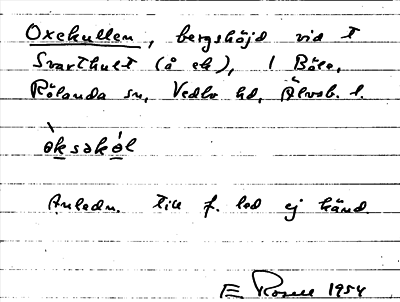 Oxekullen, bergshöjd vid t
Svarthult (å ek), 1 Båla,
Rölanda sn, Vedbo hd, Älvsb. l.
òksəkól
Anledn. till f. led ej känd.
E Rosell 1954